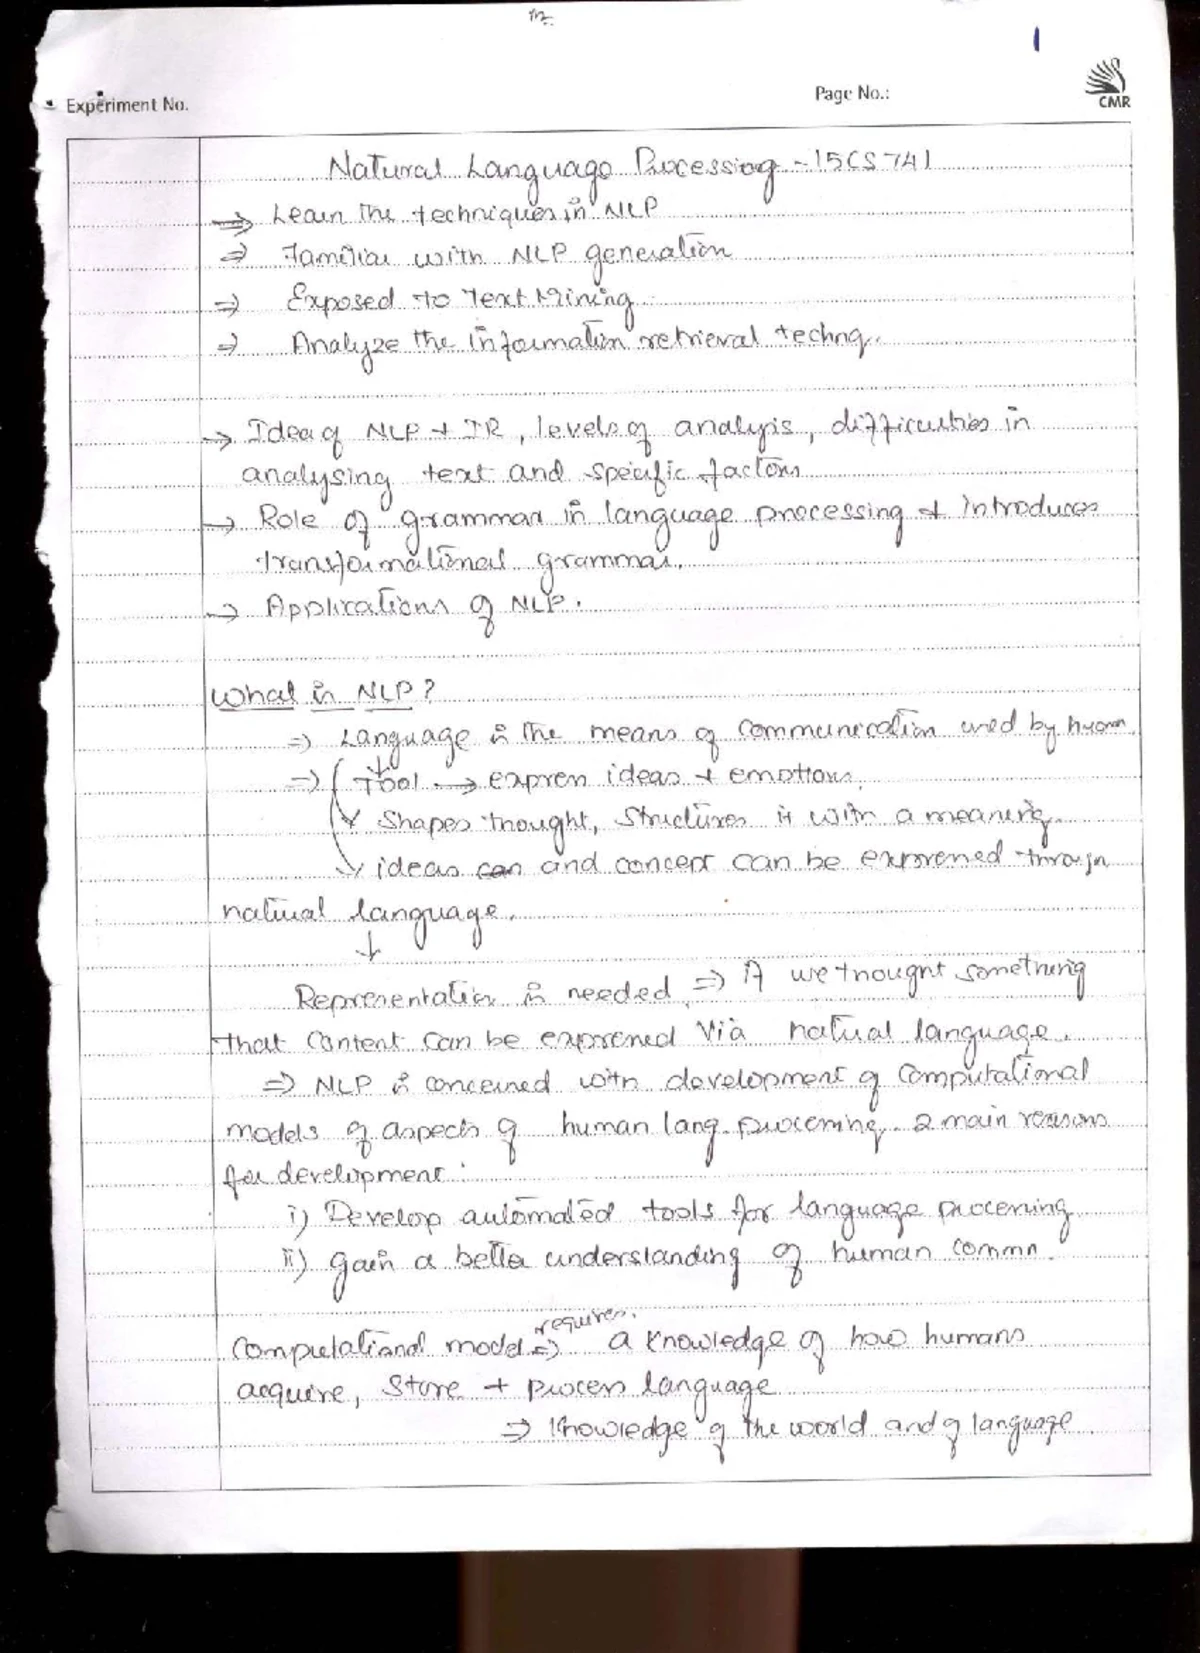 1
Experiment No.
Page No.:
CMR
Natural Language Processing - 15CS741
⇒ Learn the techniques in NLP
⇒ Familiar with NLP generation
⇒ Exposed to Text Mining.
⇒ Analyze the information retrieval technq..
→ Idea of NLP + IR, levels of analysis, difficulties in
analysing text and specific factors
→ Role of grammar in language processing & introduces
transformational grammar.
→ Applications of NLP.
What is NLP?
⇒ Language is the means of communication used by human.
⇒ Tool → express ideas + emotions.
Shapes thought, structures it with a meaning.
ideas can and concept can be expressed through
natural language.
↓
Representation is needed. ⇒ if we thought something
that content can be expressed via natural language.
⇒ NLP is concerned with development of computational
models of aspects of human lang. processing. 2 main reasons
for development:
i) Develop automated tools for language processing
ii) gain a better understanding of human commn.
requires.
Computational model ⇒ a knowledge of how humans
acquire, store + process language
⇒ Knowledge of the world and of language.